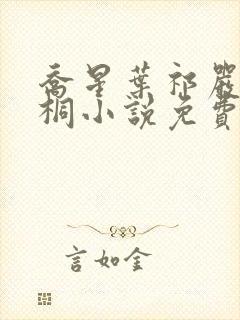 喬星葉祁嚴
桐小說免費
言如金